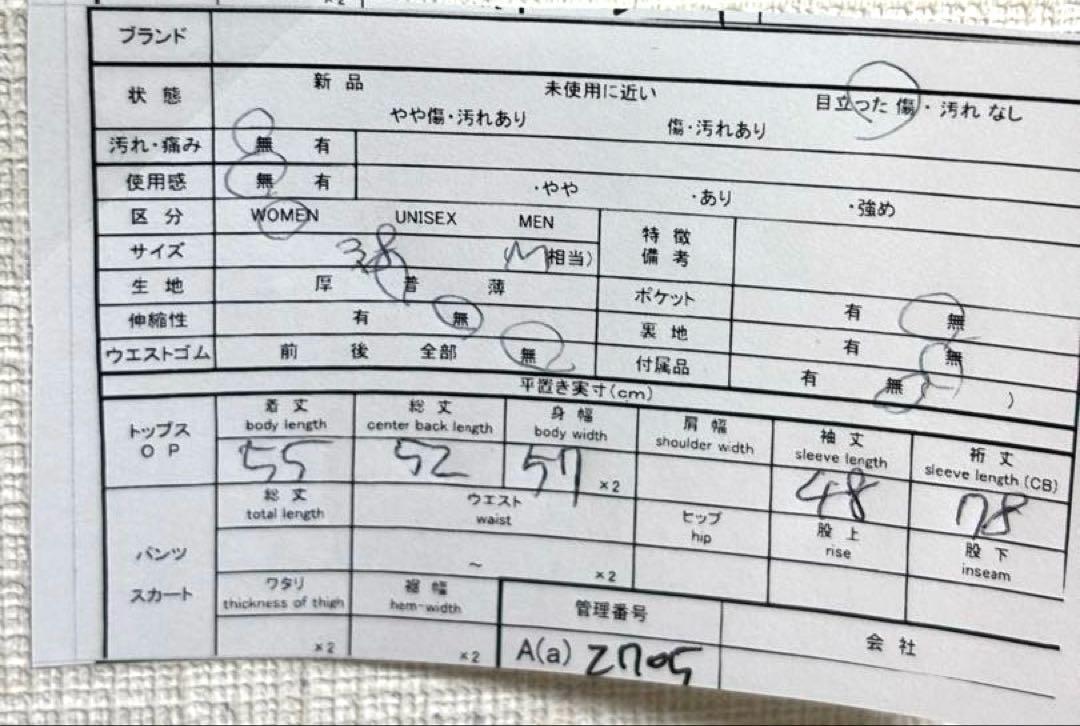 ブランド
状態 新品 未使用に近い 目立った傷・汚れなし
やや傷・汚れあり 傷・汚れあり
汚れ・痛み 無 有
使用感 無 有 ・やや ・あり ・強め
区分 WOMEN UNISEX MEN 特徴備考
サイズ 38 M相当)
生地 厚 普 薄 ポケット 有 無
伸縮性 有 無 裏地 有 無
ウエストゴム 前 後 全部 無 付属品 有 無 )
平置き実寸(cm)
トップス OP 着丈 総丈 身幅 肩幅 袖丈 裄丈
body length center back length body width shoulder width sleeve length sleeve length (CB)
55 52 57 ×2 48 78
パンツ スカート 総丈 ウエスト ヒップ 股上 股下
total length waist hip rise inseam
~ ×2
ワタリ 裾幅 管理番号 会社
thickness of thigh hem-width
×2 ×2 A(a) 2705